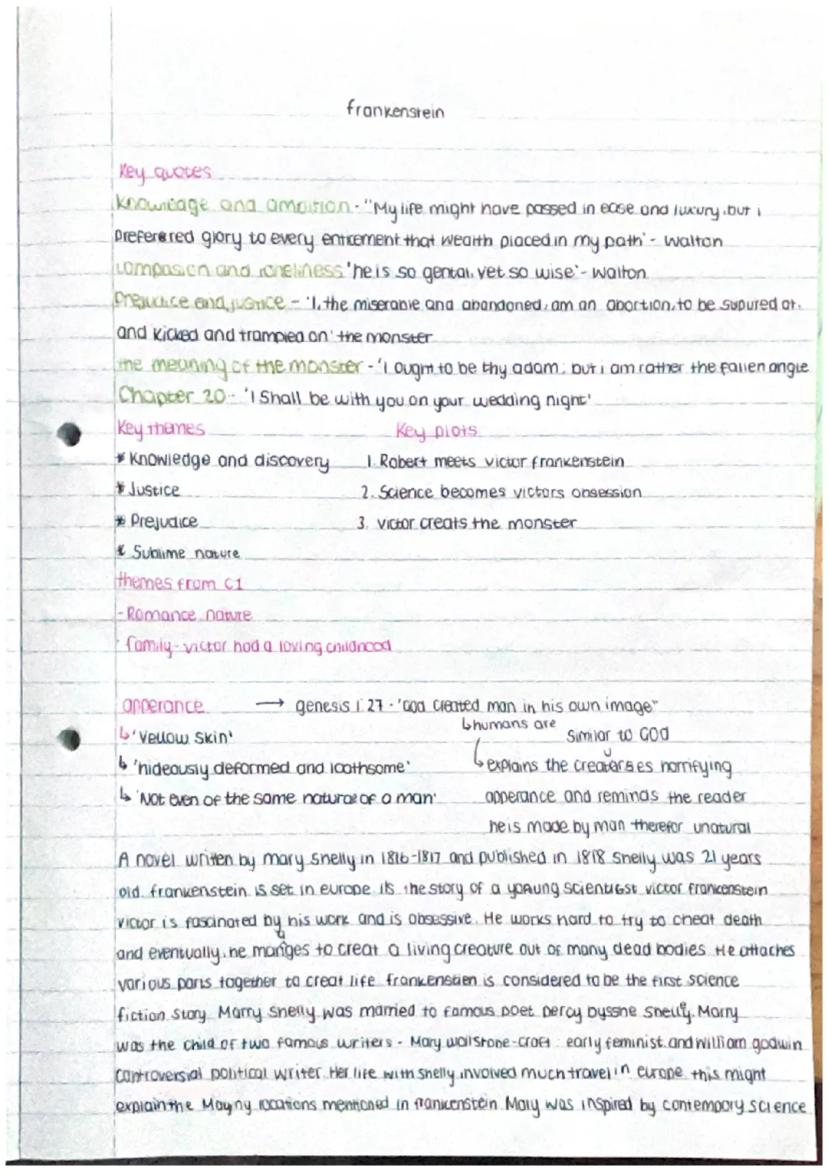 frankenstein
Key quotes
Knowledge and ambition - "My life might have passed in ease and luxury, but i
preferered glory to every enticement that wealth placed in my path' - Walton
Compasion and loneliness 'he is so gental, yet so wise' - Walton
Prejudice and justice - 'I, the miserable and abandoned, am an abortion, to be supured at,
and kicked and trampled on' the monster
the meaning of the monster - 'I ought to be thy adam, but i am rather the fallen angle
Chapter 20 - 'I Shall be with you on your wedding night'
Key themes Key plots
* Knowledge and discovery 1. Robert meets victor frankenstein
* Justice 2. Science becomes victors obsession
* Prejudice 3. victor creats the monster
* Sublime nature
themes from C1
- Romance nature
· family - victor had a loving childhood
apperance → genesis 1:27 - 'God created man in his own image"
↳ 'yellow skin' ↳ humans are similar to GOD
↳ 'hideously deformed and loathsome' ↳ explains the creatures horrifying
↳ 'Not even of the same nature of a man' apperance and reminds the reader
he is made by man therefor unatural
A novel written by mary Shelly in 1816-1817 and published in 1818 Shelly was 21 years
old. frankenstein is set in europe its the story of a young scientist victor frankenstein
victor is fascinated by his work and is obsessive. He works hard to try to cheat death
and eventually, he manges to creat a living creature out of many dead bodies. He attaches
various parts together to creat life frankenstien is considered to be the first science
fiction story. Marry Shelly was married to famous poet percy bysshe Shelly. Marry
was the child of two famous writers - Mary wollstone-craft: early feminist and william godwin
controversial political writer. Her life with shelly involved much travel in europe this might
explain the Mayny locations mentioned in frankenstein Mary was inspired by contempory science